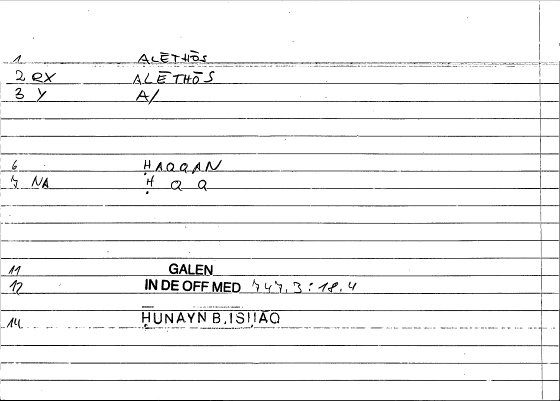 1 ALĒTHŌS
2 RX ALĒTHŌS
3 Y A/
6 ḤAQQAN
7 NA Ḥ Q Q
11 GALEN
12 IN DE OFF MED 747.3:18.4
14 ḤUNAYN B. ISḤĀQ